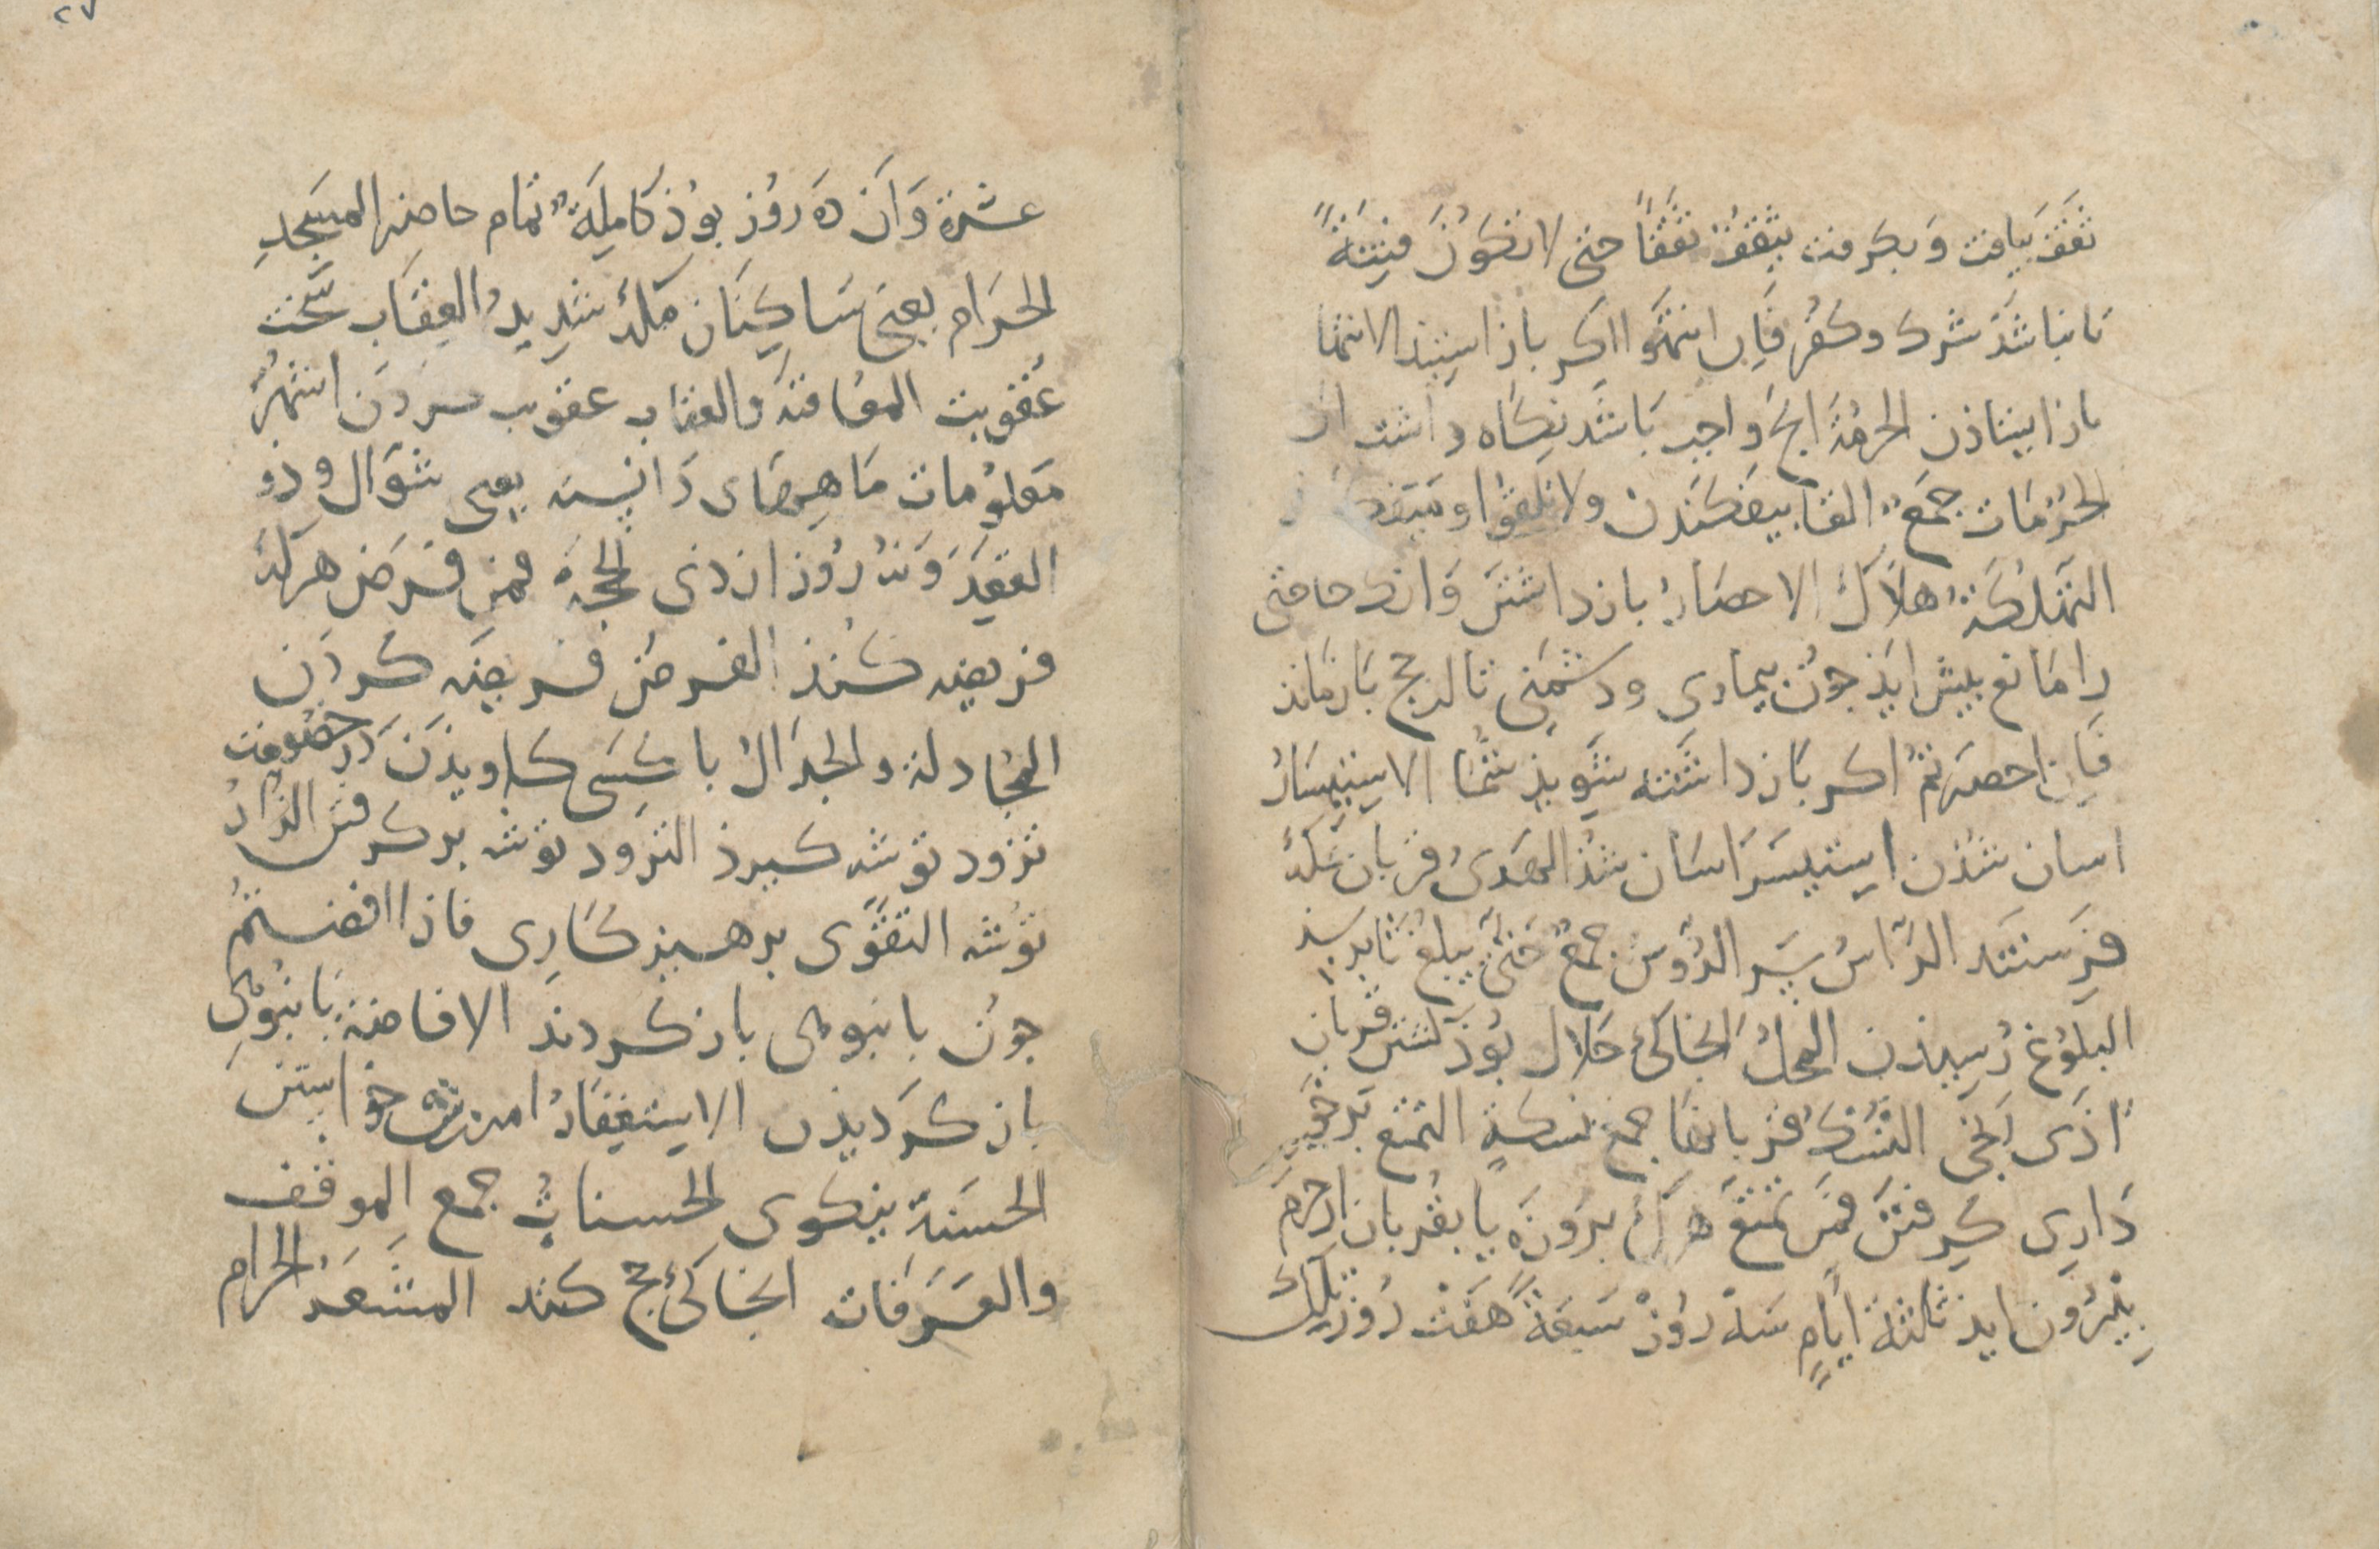 ثَقَفَ بیافت وَ بکرفت یَثْقَفُ ثَقَفًا حتی لا تکوُنَ فِتنَةً
تا نباشَذ شرک و کفُر فَاِن انتهَوا اکر باز ایستند الانتها
باز ایستاذن الحرمُةُ انج وَاجب بَاشَد نِکَاه داشتن ان
الحُرُمَات جَمعٌ القا بیفکندن ولا تلقوا و میفکنید
التهلُکَةُ هلاک الاحصَارُ باز داشتن وَ انک حاجی
را مَانع بیش ایذ جون بیماری و دشمَنِی تا از حج باز مَانذ
فَاِن احصرتمُ اکر بَاز داشته شَوِیذ شُمَا الاستیسَارُ
اسان شذن استَیسَرَ اسَان شذ الهَدیُ قربان مکه
فِرَستند الرَّاسُ سَر الرؤُس جمعٌ حَتیَّ یبلغَ تا برسد
البلُوُغ رَسِیذن المحلُّ انجَا کی حَلال بوُذ کشتن قربان
اَذَی رَنجی النُسُکُ قربانهَا جمع نسکةٍ التمتع برخور
دَارِی کرِفتن فمَن تمتعَ هر ک بعُمَره یا بقُربان از حَرَمَ
بِیرُون ایذ ثلثة اَیامٍ سَه رُوز سَبعَةً هَفت رُوز تلک
عشرة وَ آن دَه روُز بوُذ کَامِلَةٌ تمام حاضرِ المسَجدِ
الحرَام یعنی سَاکِنَان مکه شَدِیدُ العِقَاب سَخت
عقُوبت المعُاقبَة والعقاب عقوبت کردن اشهُرٌ
مَعلوُمات مَاهِهَای دَانِسته یعنی شوَال و ذو
القعِدَ وَ نُه رُوز از ذی الحجة فمن فَرضَ هر که
فریضه کنذ الفرضُ فریضَه کردن
المجُادلة والجدَالُ با کسَی کاویذن در خصُومت
تزود توشه کیرذ التزَود توشه بر کرفتن الزادُ
توُشه التقوَی برهیزکَارِی فاذا افضتمُ
جون بانبوهی باز کردند الافاضة بَانبُوهی
باز کردیذن الاستِغفَارُ امرزش خواستن
الحسَنة نیکوی الحسناتُ جمع الموقف
والعَرَفات انجَا کی حج کنند المشعَرُ الحرام